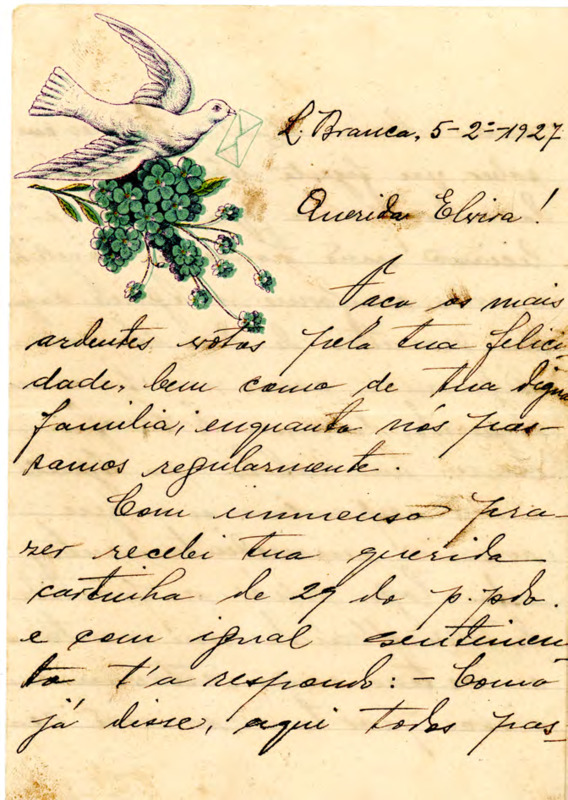 L. Branca, 5-2º-1927
Querida Elvira!
Faço os mais
ardentes votos pela tua felici
dade, bem como de tua digna
familia, enquanto nós pas-
samos regularmente.
Com immenso pra-
zer recebi tua querida
cartinha de 29 do p. pdo.
e com igual sentimen
to t'a respondo: - Como
já disse, aqui todos pas-